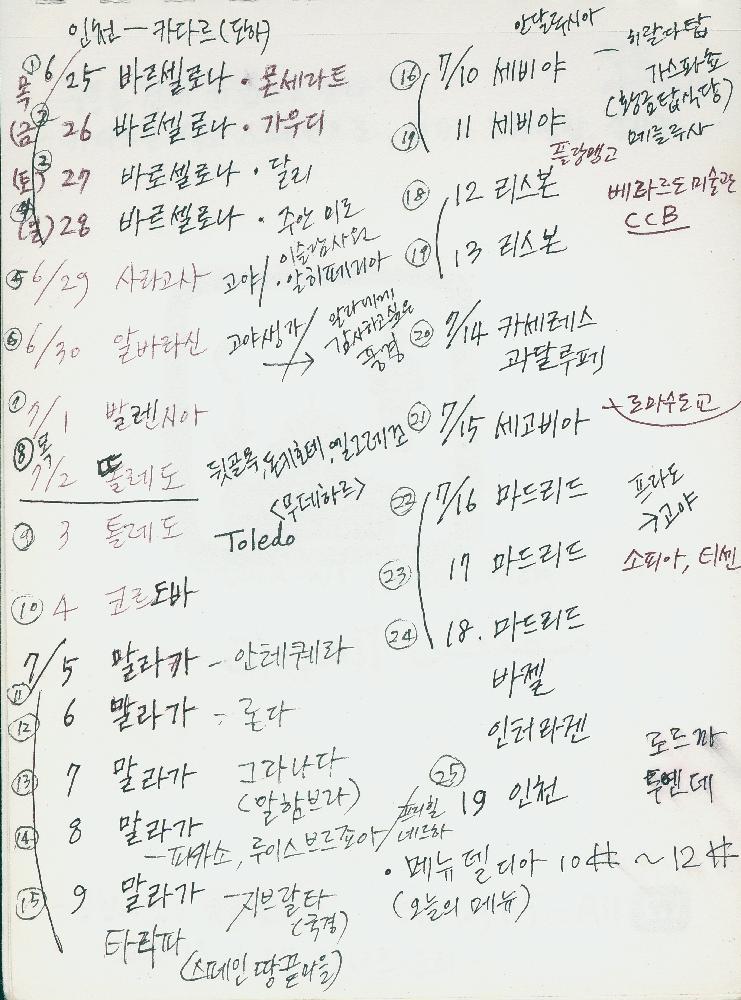 인천 - 카타르(도하)
① 목 6/25 바르셀로나 · 몬세라트
② (금) 26 바르셀로나 · 가우디
③ (토) 27 바르셀로나 · 달리
④ (일) 28 바르셀로나 · 주안 미로
⑤ 6/29 사라고사 고야/이슬람사원
· 알하페리아
⑥ 6/30 알바라신 고야생가/
→ 감사하고싶은
풍경
⑦ 7/1 발렌시아
⑧ 목 7/2 똘레도 뒷골목, 돈키호테, 엘그레꼬
<무데하르>
⑨ 3 톨레도 Toledo
⑩ 4 코르도바
⑪ 7/5 말라가 - 안테퀘라
⑫ 6 말라가 - 론다
⑬ 7 말라가 그라나다
(알함브라)
⑭ 8 말라가 / 프리힐
네르하
- 피카소, 루이스브르죠아
⑮ 9 말라가 - 지브랄타
(국경)
타리파
(스페인 땅끝마을)
안달루시아
⑯ 7/10 세비야 - 히랄다탑
가스파쵸
(황금탑식당)
⑲ 11 세비야 메를루사
플랑맹고
⑱ 12 리스본 베라르도 미술관
CCB
⑲ 13 리스본
⑳ 7/14 카세레스
과달루페
㉑ 7/15 세고비아 - 로마수도교
㉒ 7/16 마드리드 프라도
→ 고야
㉓ 17 마드리드 소피아, 티센
㉔ 18. 마드리드
바젤
인터라켄
㉕ 19 인천
로드까
뚜엔데
· 메뉴델디아 10# ~ 12#
(오늘의 메뉴)